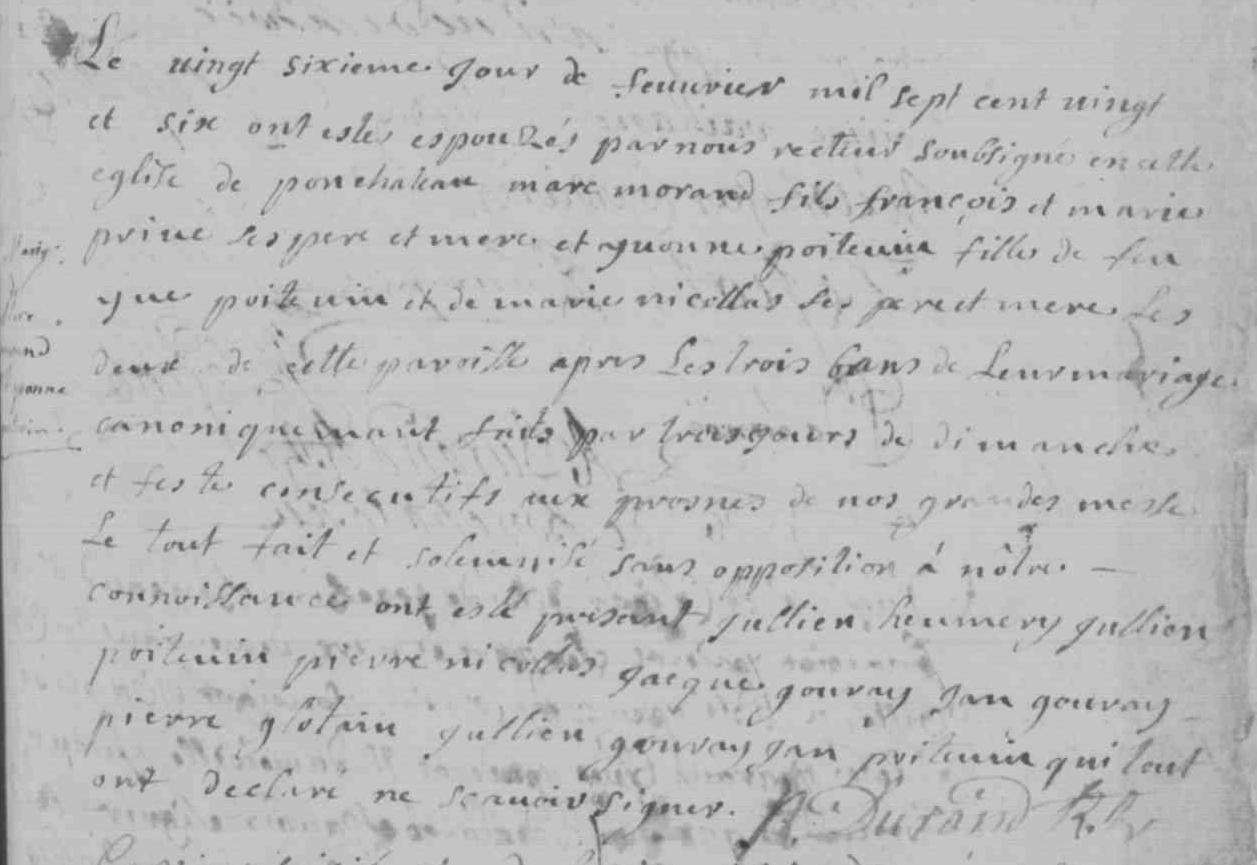 Le vingt sixieme jour de feuurier mil sept cent vingt
et six ont estes espouzés par nous recteur soubsigné en cette
eglise de ponchateau marc morand fils françois et marie
priué ses pere et mere et yuonne poiteuin fille de feu
yue poiteuin et de marie nicollas ses pere et mere Les
deux de cette paroisse apres Les trois bans de Leur mariage
canoniquemant faits par trois jours de dimanche
et feste consecutifs aux prosnes de nos grandes messe
Le tout fait et solemnisé sans opposition à nôtre —
connoissance ont esté present jullien heumery jullien
poiteuin pierre nicollas jacque gouray jan gouray
pierre glotain jullien gouray jan poiteuin qui tout
ont declaré ne scauoir signer. Durand